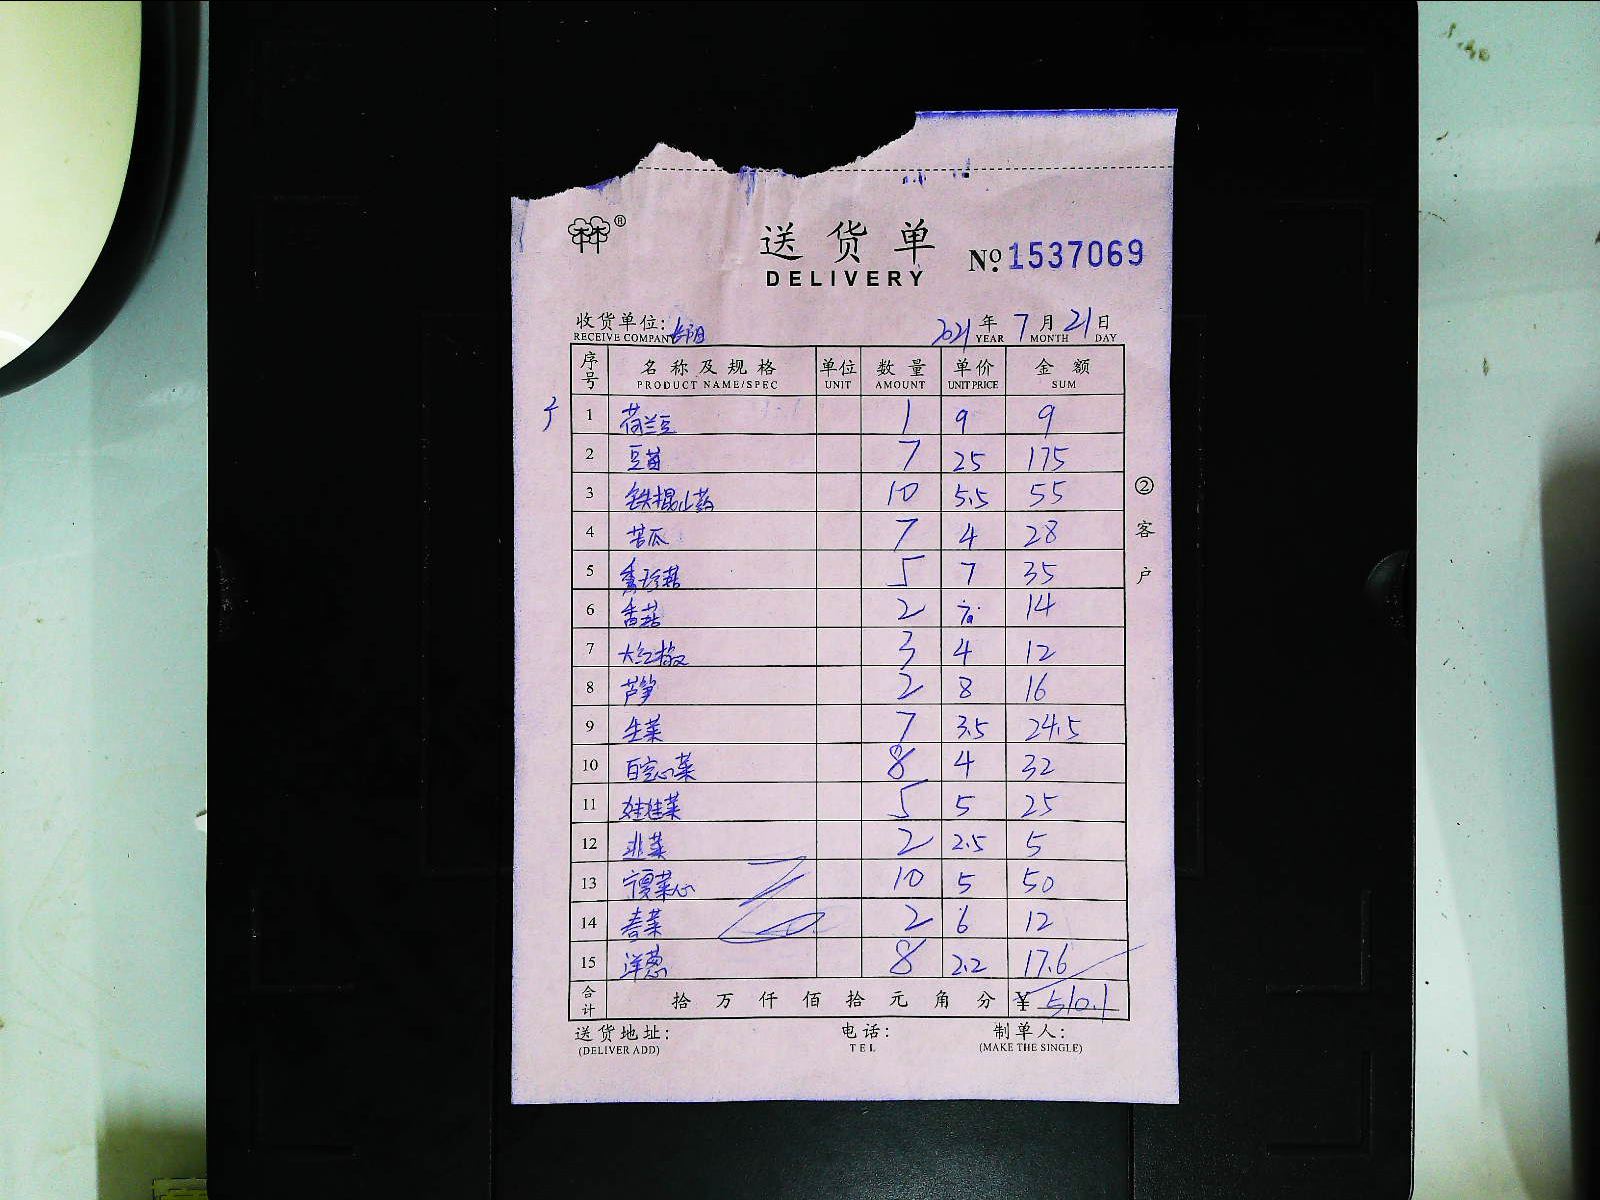 送货单
DELIVERY
№ 1537069
收货单位:
RECEIVE COMPAN
2021 年 7 月 21 日
YEAR MONTH DAY
序号 名称及规格 单位 数量 单价 金额
PRODUCT NAME/SPEC UNIT AMOUNT UNIT PRICE SUM
1 荷兰豆 1 9 9
2 豆苗 7 25 175
3 铁棍山药 10 5.5 55
4 苦瓜 7 4 28
5 秀珍菇 5 7 35
6 香菇 2 14
7 大红椒 3 4 12
8 芦笋 2 8 16
9 生菜 7 3.5 24.5
10 白空心菜 8 4 32
11 娃娃菜 5 5 25
12 韭菜 2 2.5 5
13 宁夏菜心 10 5 50
14 春菜 2 6 12
15 洋葱 8 2.2 17.6
合计 拾 万 仟 佰 拾 元 角 分 ¥ 510.1
送货地址: 电话: 制单人:
(DELIVER ADD) TEL (MAKE THE SINGLE)
② 客户